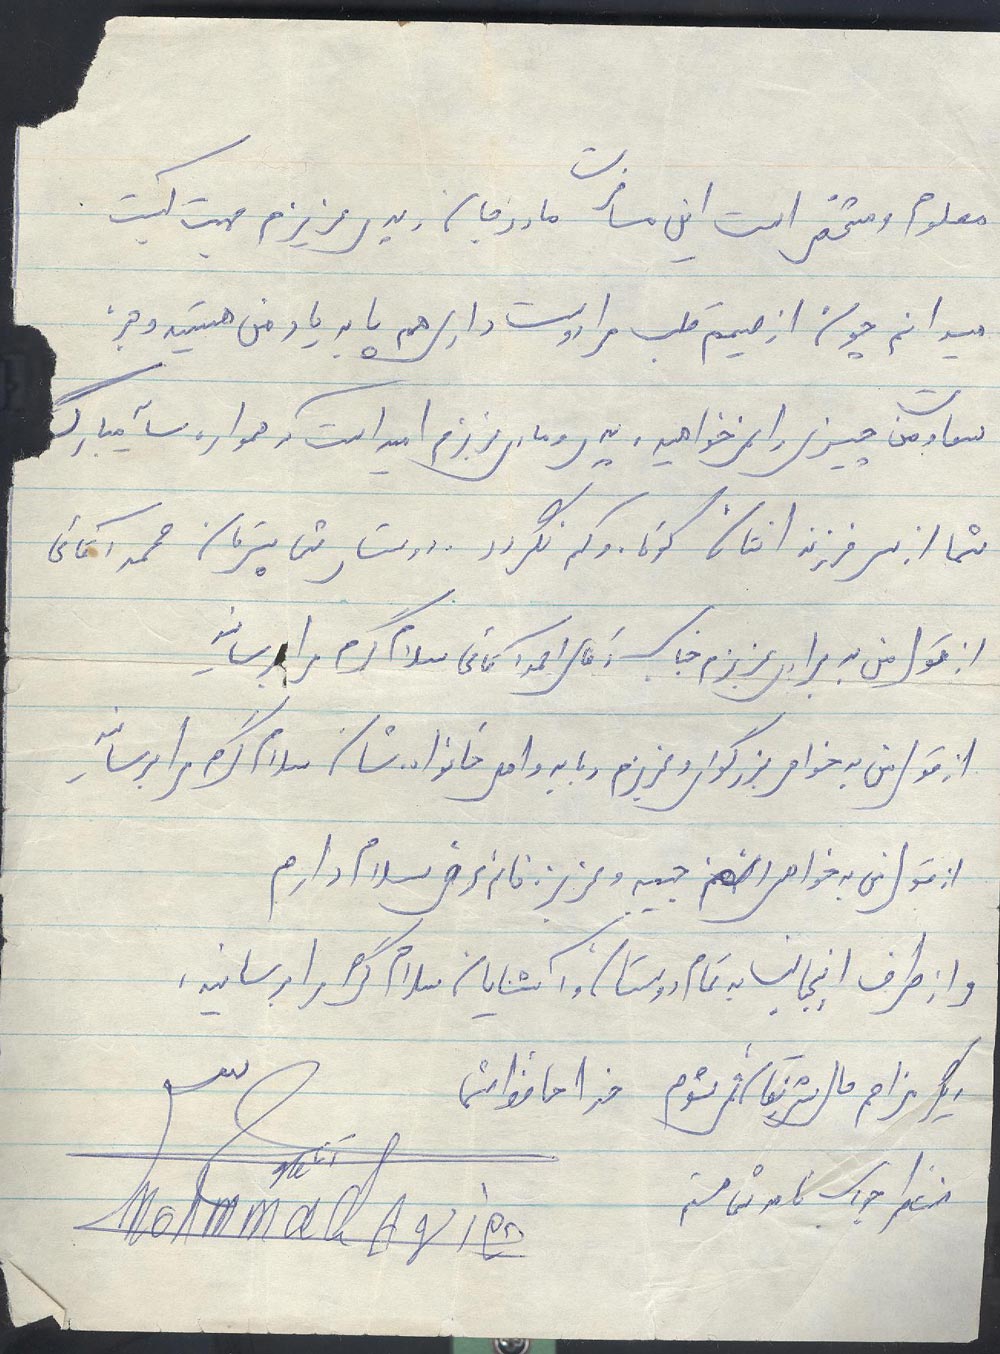 معلوم و مشخص است این مسافرت مادر جان و پدر عزیزم
میدانم چون از صمیم قلب مرا دوست دارید هم پا به یاد من هستید و جز
سعادت من چیزی را نمی خواهید، پدر و مادر عزیزم امید است که همواره سایه مبارک
شما از سر فرزندانتان کوتاه و کم نگردد. دوستدار شما پسرتان محمد آقائی
از قول من به برادر عزیزم جناب آقای احمد آقائی سلام گرم مرا برسانید
از قول من به خواهر بزرگوار و عزیزم ربابه و اهل خانواده شان سلام گرم مرا برسانید
از قول من به خواهر حبیبه و عزیزه خانم عرض سلام دارم
و از طرف اینجانب به تمام دوستان و آشنایان سلام گرم مرا برسانید،
دیگر مزاحم حال شریفتان نمی شوم خدا حافظ شما
منتظر جواب نامه شما هستم
آقائی
Mohmmad Agvieo